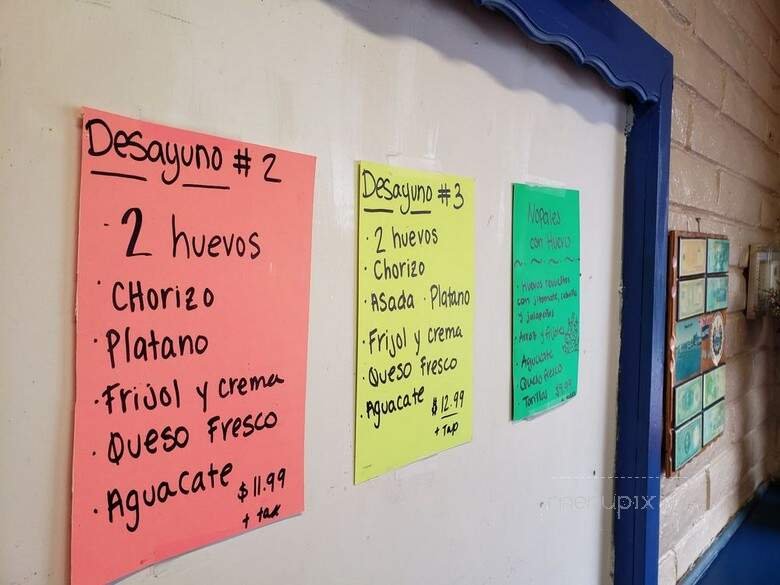 Desayuno # 2
· 2 huevos
· CHorizo
· Platano
· Frijol y crema
· Queso Fresco
· Aguacate $11.99
+ tax
Desayuno #3
· 2 huevos
· Chorizo
· Asada · Platano
· Frijol y crema
· Queso Fresco
· Aguacate $12.99
+ Tap
Nopales
con Huevo
· Huevos revueltos
con jitomate, cebolla
y jalapeños
· Arroz y frijoles
· Aguacate
· Queso fresco
Tortillas $9.99
menupix